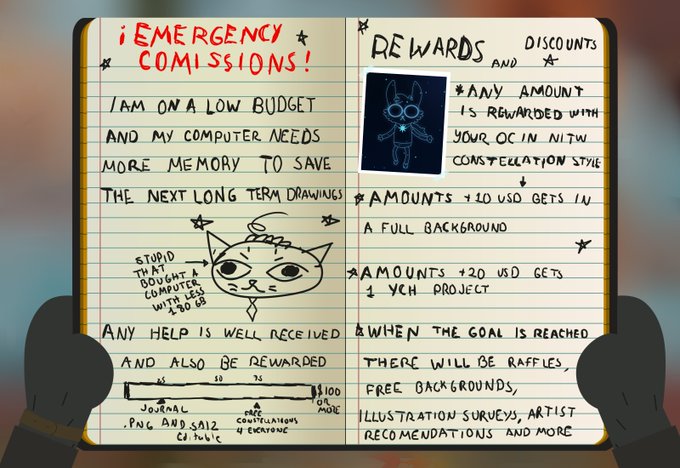 ¡EMERGENCY
COMISSIONS!
I AM ON A LOW BUDGET
AND MY COMPUTER NEEDS
MORE MEMORY TO SAVE
THE NEXT LONG TERM DRAWINGS
STUPID
THAT
BOUGHT A
COMPUTER
WITH LESS
180 GB
ANY HELP IS WELL RECEIVED
AND ALSO BE REWARDED
25 50 75
$100
OR
MORE
JOURNAL
.PNG AND .SAI2
Editable
FREE
CONSTELLATIONS
4 EVERYONE
REWARDS AND DISCOUNTS
*ANY AMOUNT
IS REWARDED WITH
YOUR OC IN NITW
CONSTELLATION STYLE
AMOUNTS +10 USD GETS IN
A FULL BACKGROUND
AMOUNTS +20 USD GETS
1 YCH PROJECT
WHEN THE GOAL IS REACHED
THERE WILL BE RAFFLES,
FREE BACKGROUNDS,
ILLUSTRATION SURVEYS, ARTIST
RECOMENDATIONS AND MORE